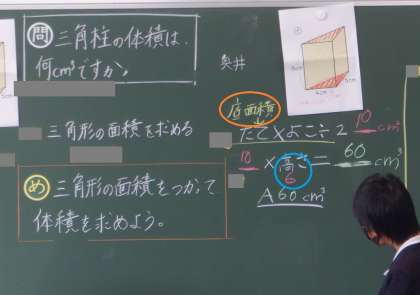 問 三角柱の体積は、
何cm³ですか。
三角形の面積を求める
め 三角形の面積をつかって
体積を求めよう。
奥井
底面積
たて×よこ÷2 10 cm³
10 ×高さ= 60 cm³
6
A 60cm³